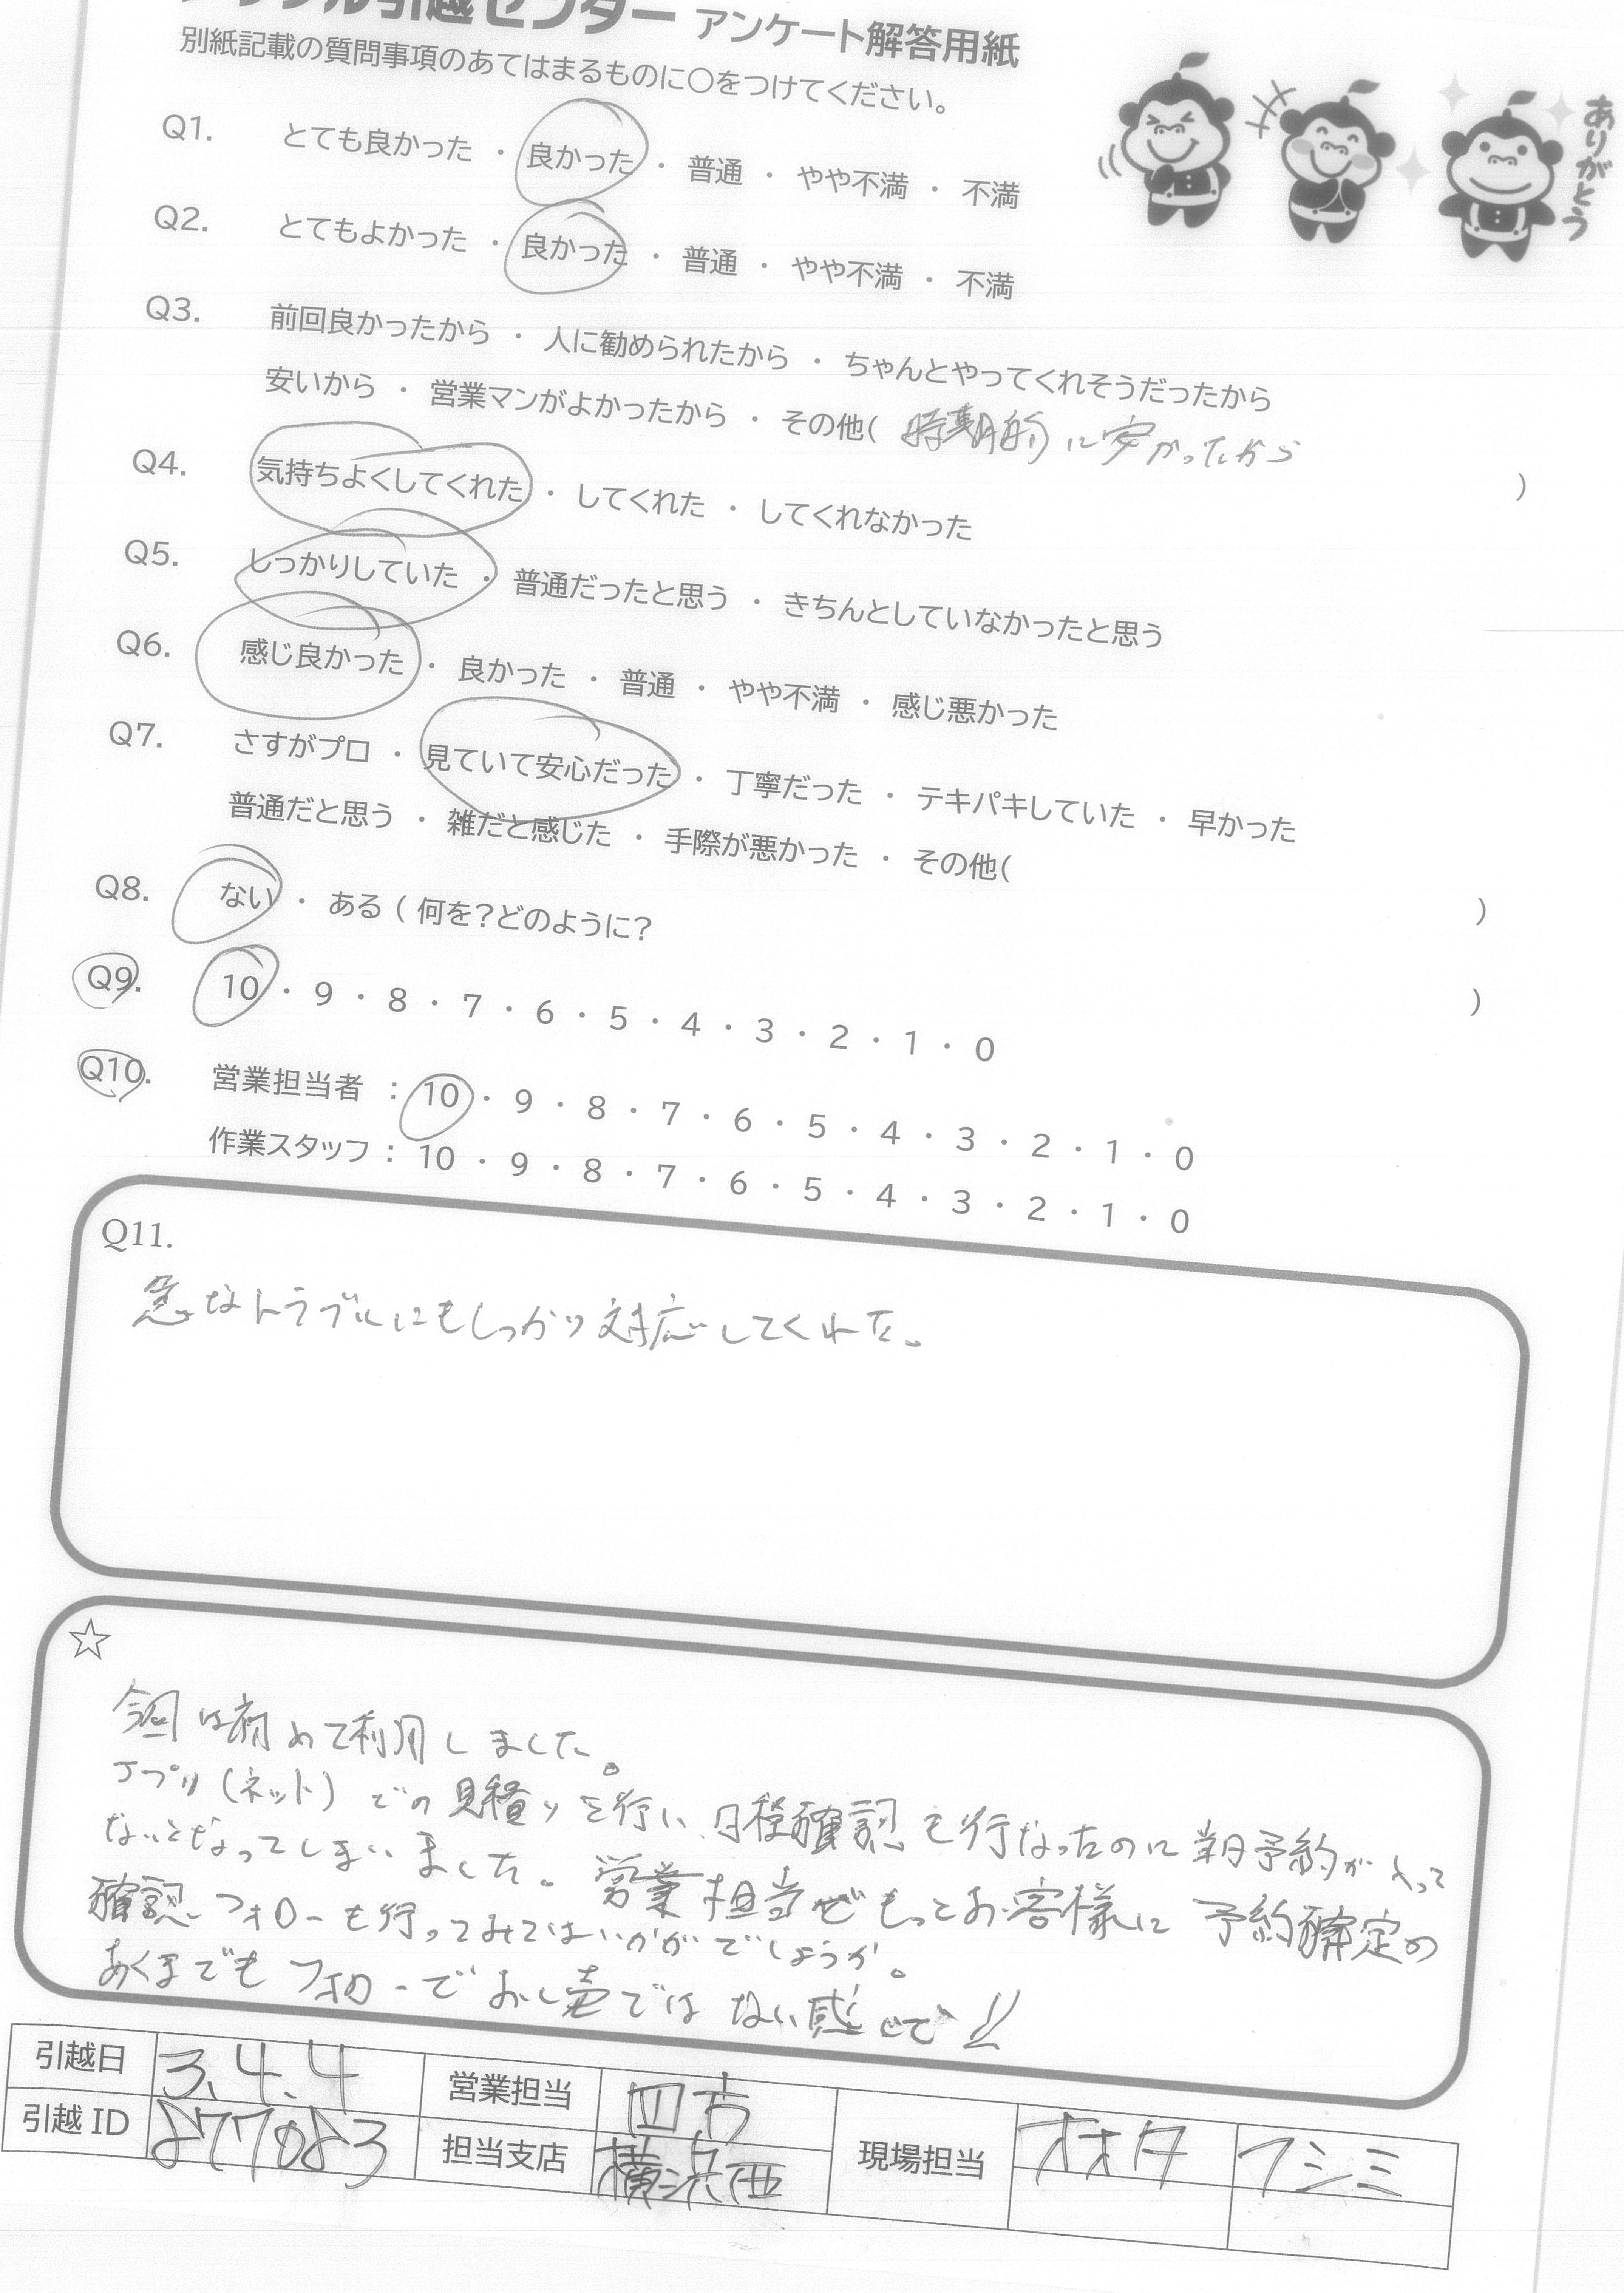 引越センター アンケート解答用紙
別紙記載の質問事項のあてはまるものに○をつけてください。
ありがとう
Q1. とても良かった ・ 良かった ・ 普通 ・ やや不満 ・ 不満
Q2. とてもよかった ・ 良かった ・ 普通 ・ やや不満 ・ 不満
Q3. 前回良かったから ・ 人に勧められたから ・ ちゃんとやってくれそうだったから
安いから ・ 営業マンがよかったから ・ その他( 時期的に安かったから )
Q4. 気持ちよくしてくれた ・ してくれた ・ してくれなかった
Q5. しっかりしていた ・ 普通だったと思う ・ きちんとしていなかったと思う
Q6. 感じ良かった ・ 良かった ・ 普通 ・ やや不満 ・ 感じ悪かった
Q7. さすがプロ ・ 見ていて安心だった ・ 丁寧だった ・ テキパキしていた ・ 早かった
普通だと思う ・ 雑だと感じた ・ 手際が悪かった ・ その他( )
Q8. ない ・ ある ( 何を?どのように? )
Q9. 10 ・ 9 ・ 8 ・ 7 ・ 6 ・ 5 ・ 4 ・ 3 ・ 2 ・ 1 ・ 0
Q10. 営業担当者 : 10 ・ 9 ・ 8 ・ 7 ・ 6 ・ 5 ・ 4 ・ 3 ・ 2 ・ 1 ・ 0
作業スタッフ : 10 ・ 9 ・ 8 ・ 7 ・ 6 ・ 5 ・ 4 ・ 3 ・ 2 ・ 1 ・ 0
Q11.
急なトラブルにもしっかり対応してくれた。
☆
今回は初めて利用しました。
アプリ(ネット)での見積りを行い、日程確認も行なったのに当日予約が入って
ないとなってしまいました。営業担当でもっとお客様に予約確定の
確認フォローも行ってみてはいかがでしょうか。
あくまでもフォローでおし売ではない感じで!!
引越日 3.4.4 営業担当 四古
引越ID 877083 担当支店 横浜西 現場担当 オオタ フシミ